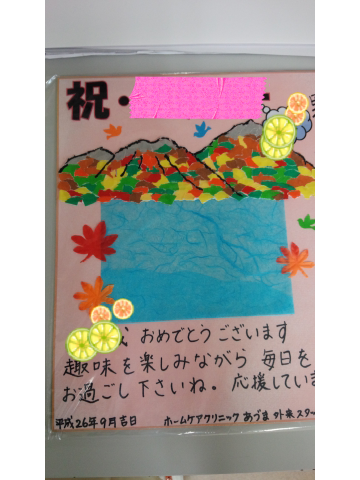 祝・
おめでとうございます
趣味を楽しみながら 毎日を
お過ごし下さいね。応援していま
平成26年9月吉日 ホームケアクリニック あづま 外来スタッ